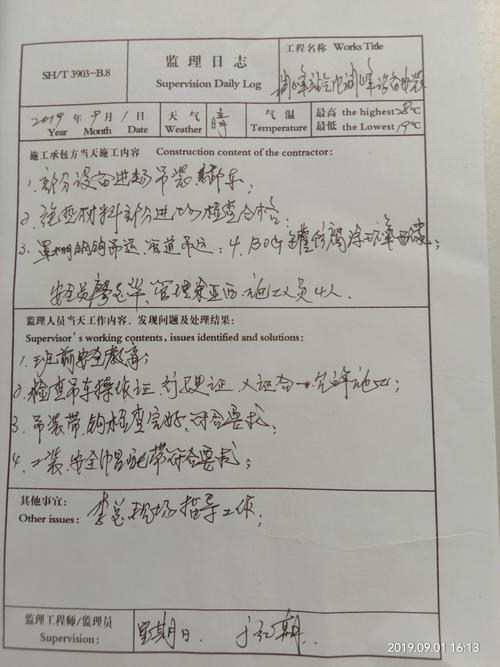 监理日志
工程名称 Works Title
SH/T 3903-B.8
Supervision Daily Log
调峰站 调峰设备安装
2019年9月1日
天气 晴
气温
最高 the highest 28℃
Year Month Date
Weather
Temperature
最低 the Lowest 19℃
施工承包方当天施工内容 Construction content of the contractor:
1. 部分设备进场吊装卸车;
2. 材料部分进场检查合格
3. 吊运、管道吊运; 4.
安全员 管理 施工人员4人.
监理人员当天工作内容、发现问题及处理结果:
Supervisor's working contents, issues identified and solutions:
1. 班前安全教育;
2. 检查吊车操作证、行驶证、人证合一允许施工;
3. 吊装带、钩检查完好,符合要求;
4. 工装、安全帽配带符合要求;
其他事宜:
Other issues:
李总现场指导工作;
监理工程师/监理员
Supervision:
星期日.
2019.09.01 16:13